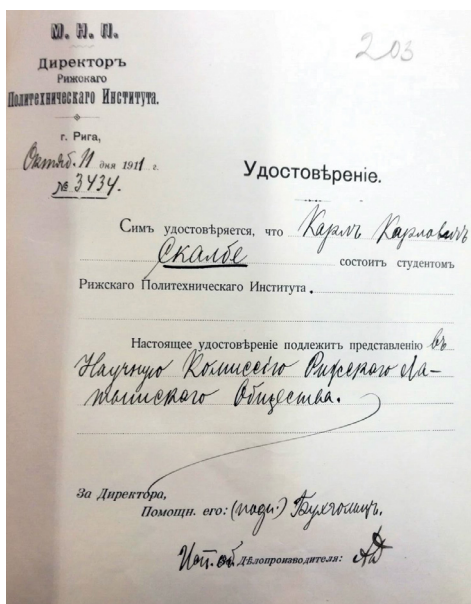 М. Н. П.
Директоръ
Рижскаго
Политехническаго Института.
г. Рига,
Октяб. 11 дня 1911 г.
№ 3434.
203
Удостовѣреніе.
Симъ удостовѣряется, что Карлъ Карловичъ
Скалбе состоитъ студентомъ
Рижскаго Политехническаго Института.
Настоящее удостовѣреніе подлежитъ представленію въ
Научную Комиссію Рижскаго Ла-
тышскаго Общества.
За Директора,
Помощн. его: (подп.) Бухгольцъ.
Исп. об. Дѣлопроизводителя: